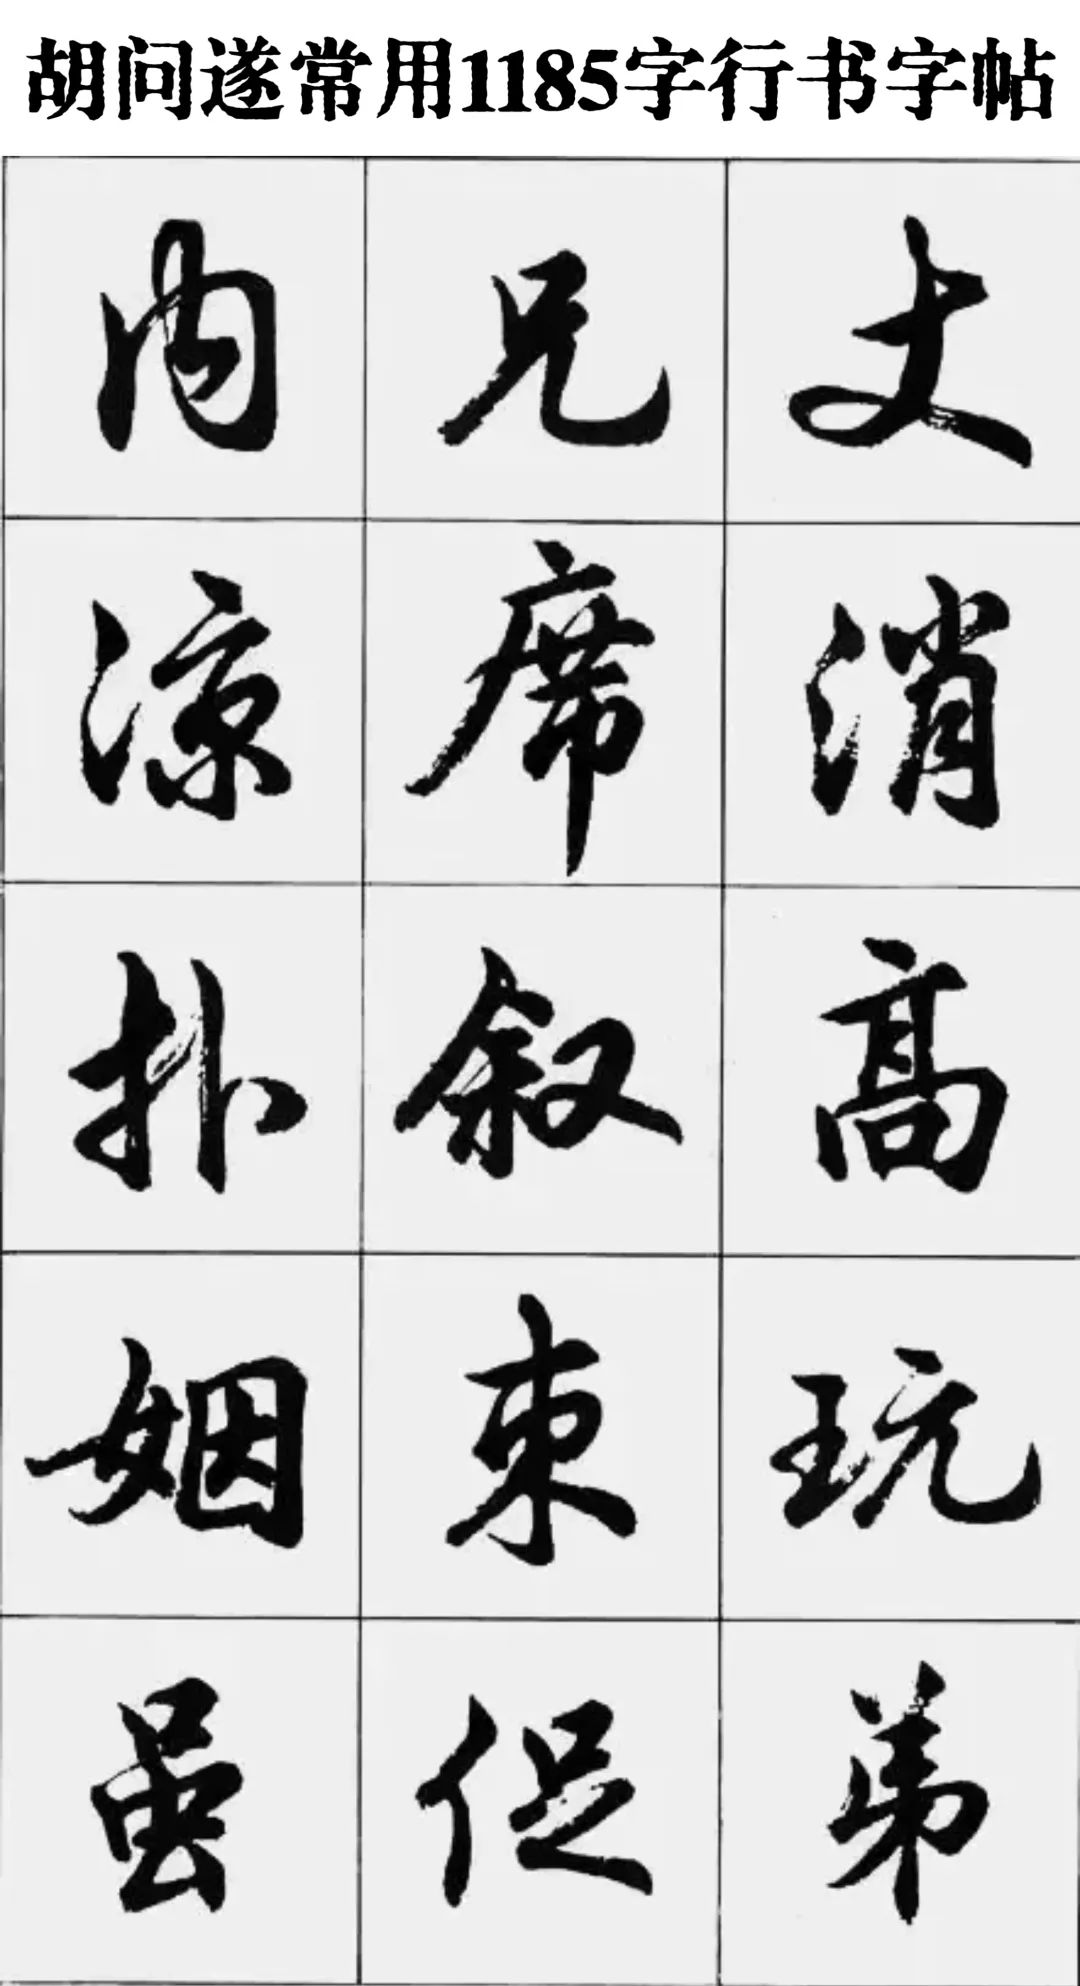 胡问遂常用1185字行书字帖
内兄丈
凉席消
扑叙高
姻束玩
虽促弟